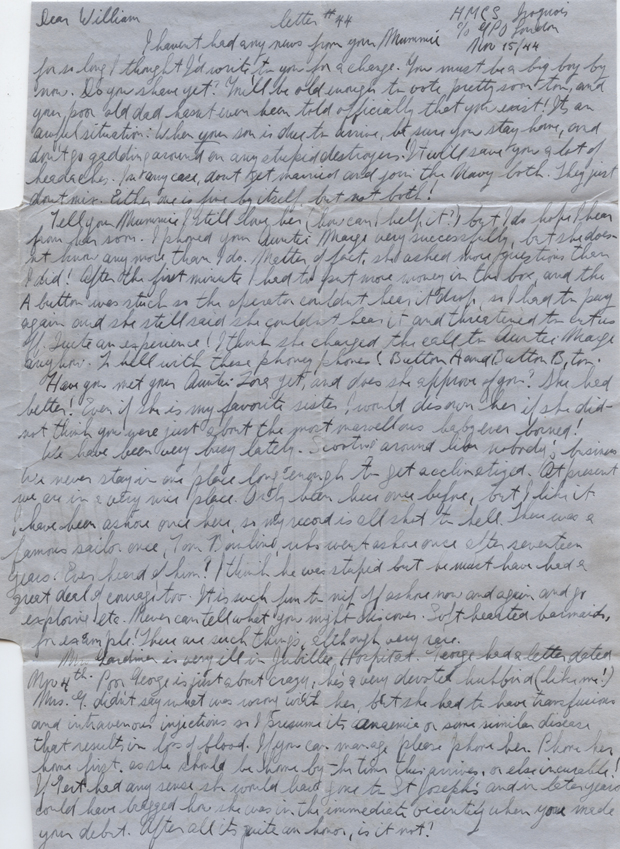 Dear William letter #44 HMCS Iroquois
c/o GPO London
Nov 15/44
I haven't had any news from your Mummie
for so long I thought I'd write to you for a change. You must be a big boy by
now. Do you shave yet? You'll be old enough to vote pretty soon too, and
your poor old dad hasn't even been told officially that you exist! It's an
awful situation: When your son is due to arrive, be sure you stay home, and
don't go gadding around on any stupid destroyers. It will save you a lot of
headaches. In any case, don't get married and join the Navy both. They just
don't mix. Either one is fine by itself, but not both!
Tell your Mummie I still love her (how can I help it?) but I do hope I hear
from her soon. I phoned your Auntie Marge very successfully, but she doesn
't know any more than I do. Matter of fact, she asked more questions than
I did! After the first minute I had to put more money in the box, and the
A button was stuck so the operator couldn't hear it drop, so I had to pay
again and she still said she couldn't hear it and threatened to cut us
off. Quite an experience! I think she charged the call to Auntie Marge
anyhow. To hell with these phoney phones! Button A and Button B, too.
Have you met your Auntie Zora yet, and does she approve of you? She had
better! Even if she is my favorite sister I would disown her if she did-
not think you were just about the most marvellous baby ever borned!
We have been very busy lately. Scooting around like nobody's business
We never stay in one place long enough to get acclimatized. At present
we are in a very nice place. Only been here once before, but I like it
I have been ashore once here, so my record is all shot to hell. There was a
famous sailor once, Tom Bowline, who went ashore once after seventeen
years. Ever heard of him? I think he was stupid but he must have had a
great deal of courage too. It is such fun to nip off ashore now and again and go
exploring etc. Never can tell what you might discover. Soft hearted barmaids,
for example! There are such things, although very rare.
Mrs. Gardner is very ill in Jubilee Hospital. George had a letter dated
Nov 4th. Poor George is just about crazy, he's a very devoted husbind (like me!)
Mrs. G. didn't say what was wrong with her, but she had to have transfusions
and intravenous injections so I presume its anaemia or some similar disease
that results in loss of blood. If you can manage please phone her. Phone her
home first, as she should be home by the time this arrives, or else incurable!
If Gert had any sense she would have gone to St Joseph's and in later years
could have bragged how she was in the immediate vicinity when you made
your debut. After all its quite an honor, is it not!